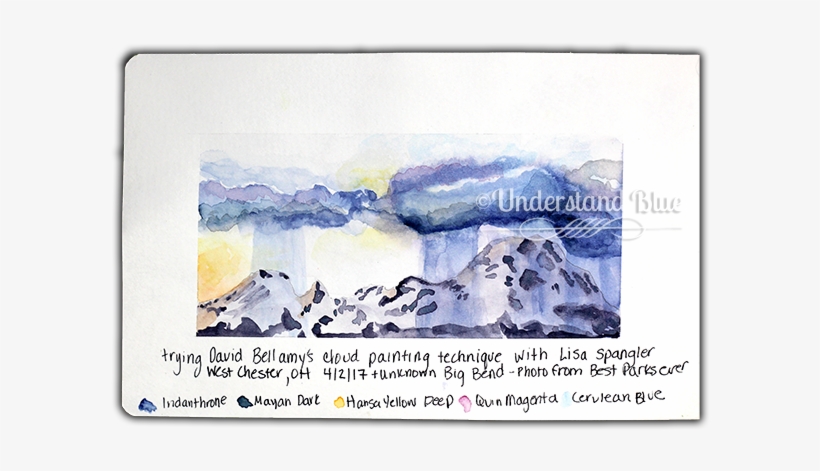 ©Understand Blue
trying David Bellamy's cloud painting technique with Lisa Spangler
West Chester, OH 4/2/17 + unknown Big Bend - Photo from Best Parks ever
Indanthrone Mayan Dark Hansa Yellow Deep Quin Magenta Cerulean Blue